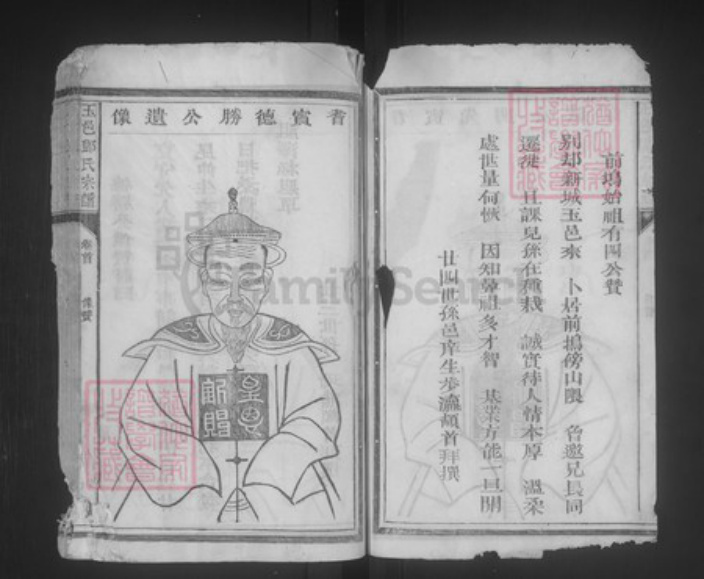 前塢始祖有四公贊
別却新城玉邑來 卜居前塢傍山隈 魯邀兄長同
遷徙 且課兒孫在種栽 誠實待人情本厚 溫柔
處世量何恢 因知肇祖多才智 基業方能一旦開
廿四世孫邑庠生步瀛頓首拜撰
耆賓德勝公遺像
皇恩
欽賜
玉邑鄭氏宗譜
卷首 像贊
FamilySearch